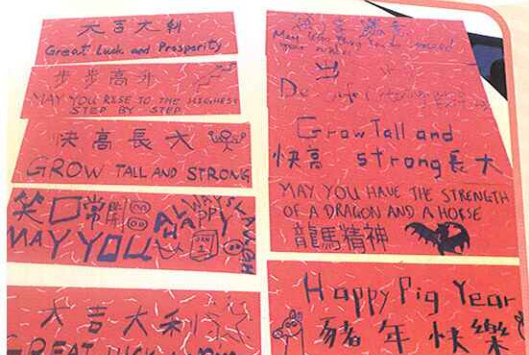 大吉大利
Great Luck and Prosperity
步步高升
MAY YOU RISE TO THE HIGHEST
STEP BY STEP
快高長大
GROW TALL AND STRONG
笑口常開
MAY YOU ALWAYS LAUGH
HAPPY
大吉大利
GREAT LUCK
出
Grow Tall and
快高 strong 長大
MAY YOU HAVE THE STRENGTH
OF A DRAGON AND A HORSE
龍馬精神
Happy Pig Year
豬年快樂